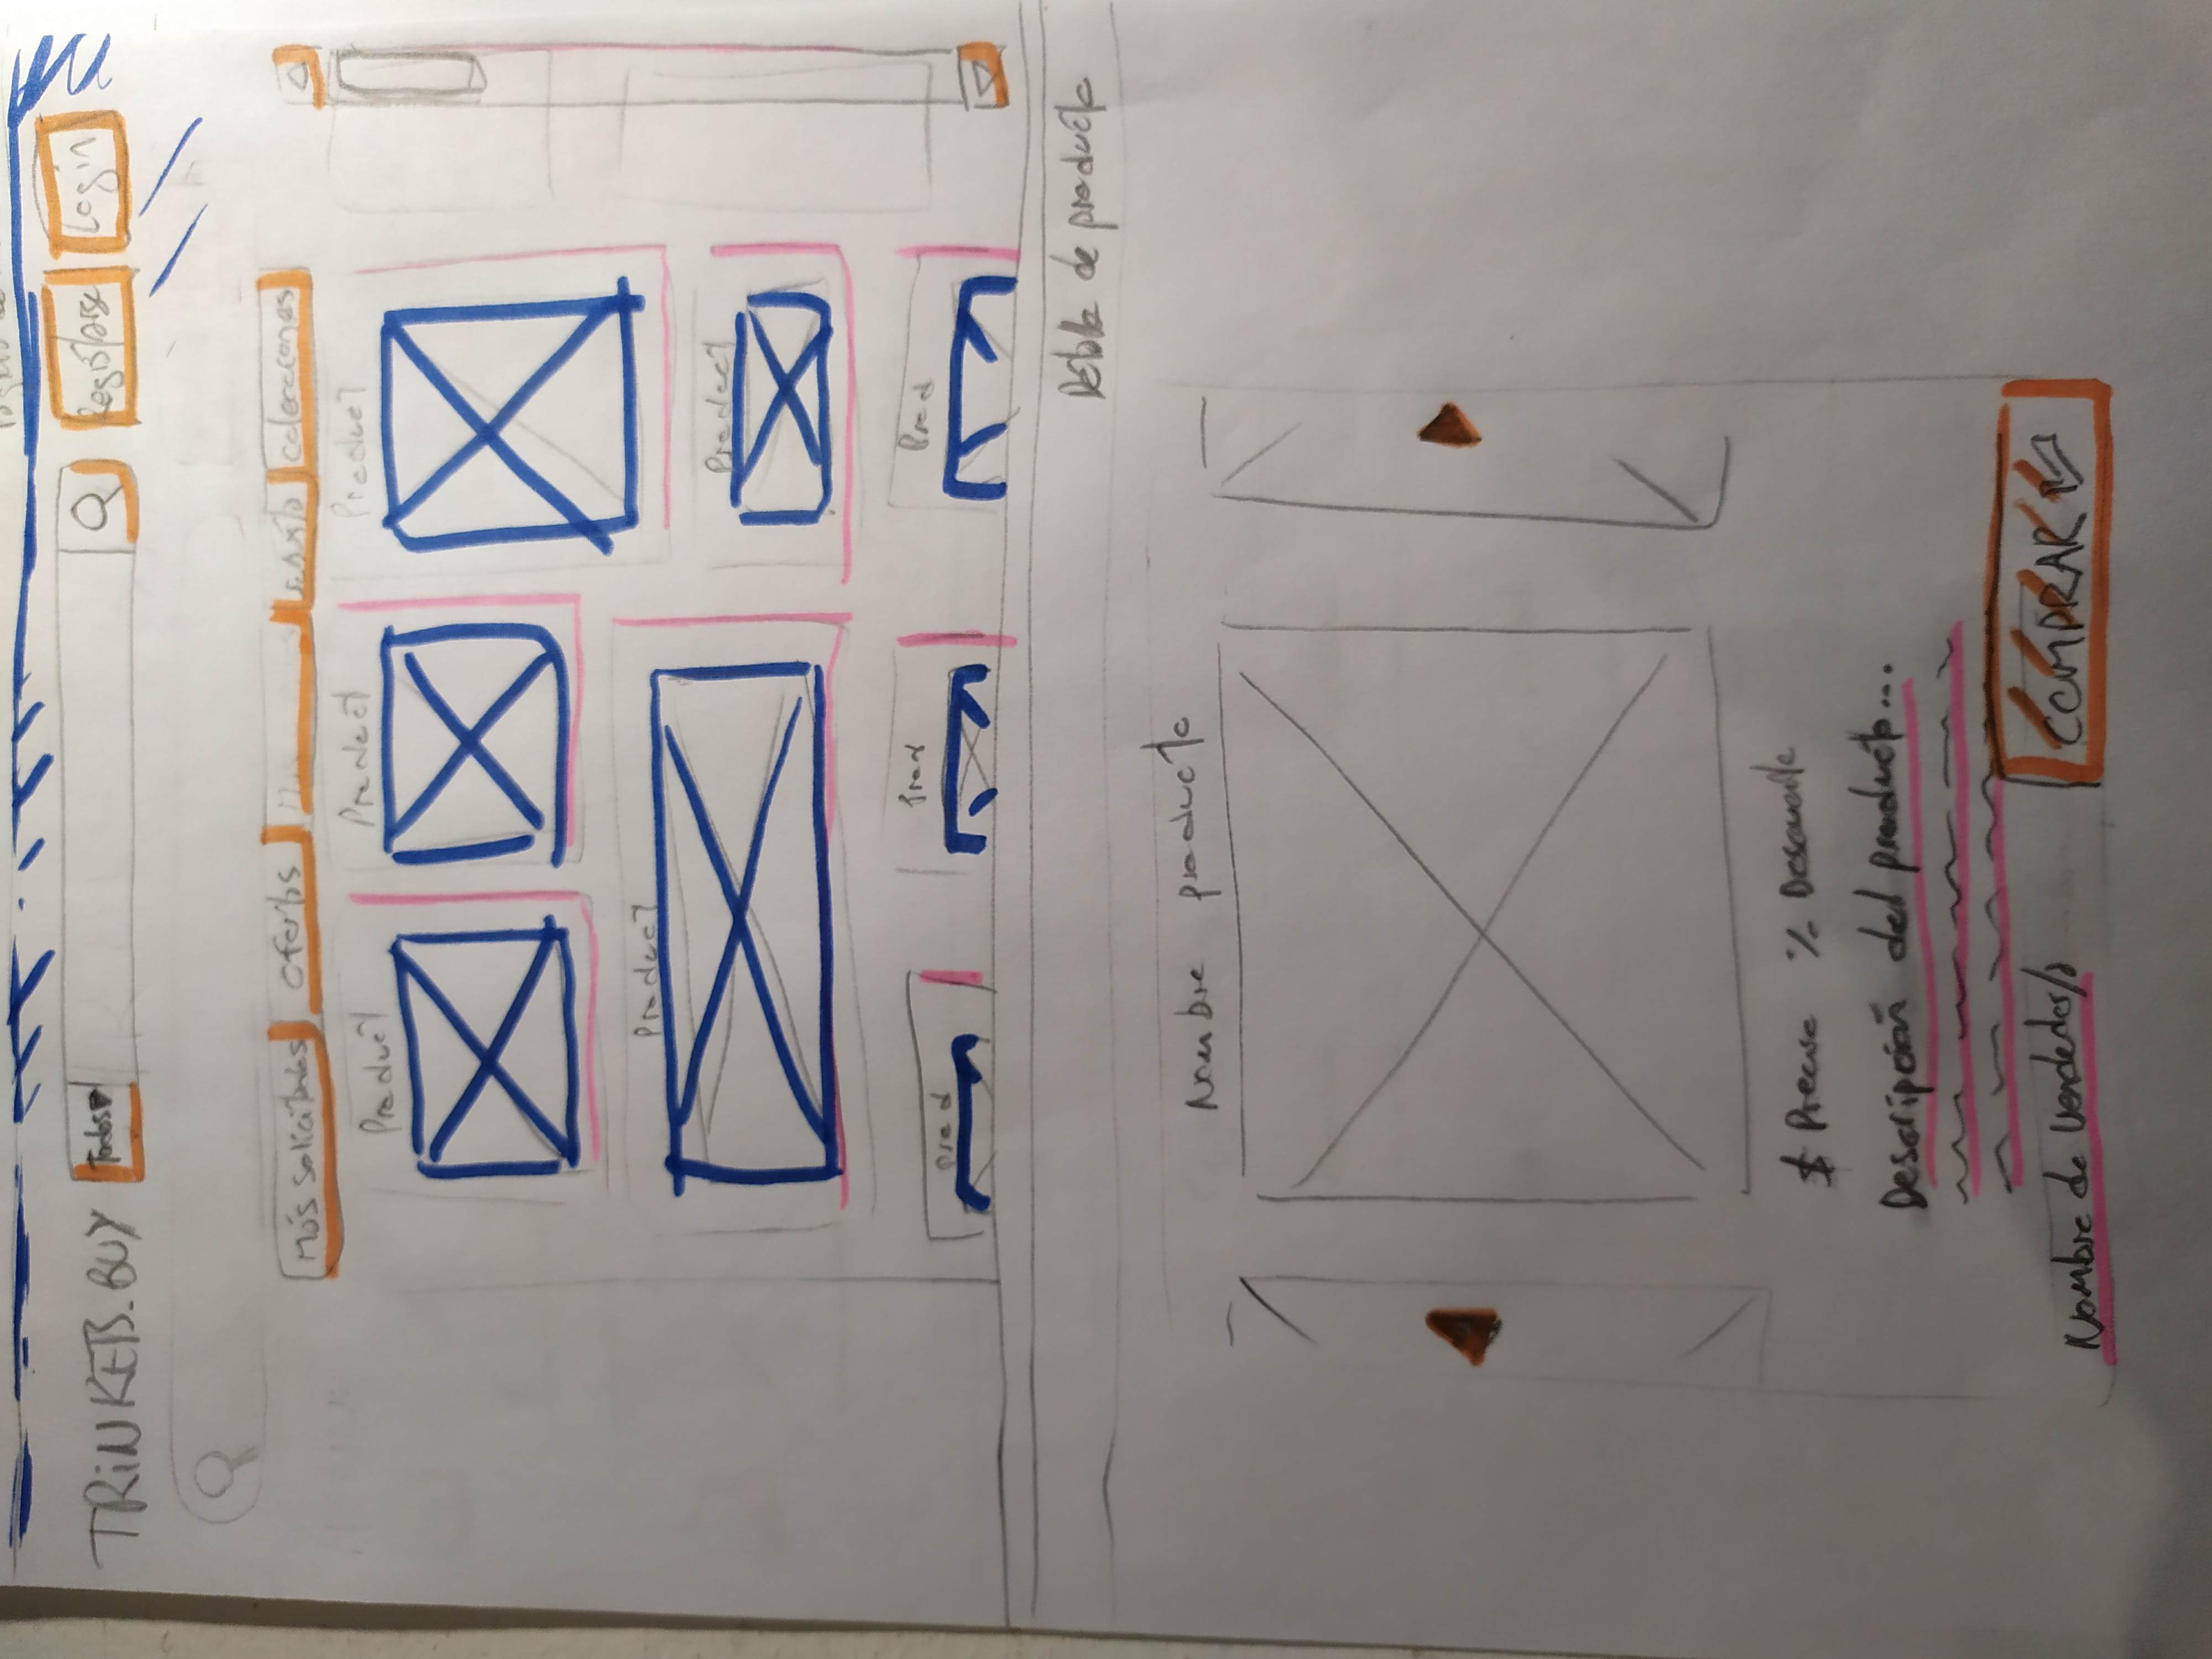 TRINKETS.BUY Todos Registrarse Login
Más Solicitados Ofertas Colecciones
Product Product Product
Product
Product
Prod Prod Prod
Detalle de producto
Nombre producto
$ Precio % Descuento
Descripción del producto...
Nombre de Vendedor/a
COMPRAR